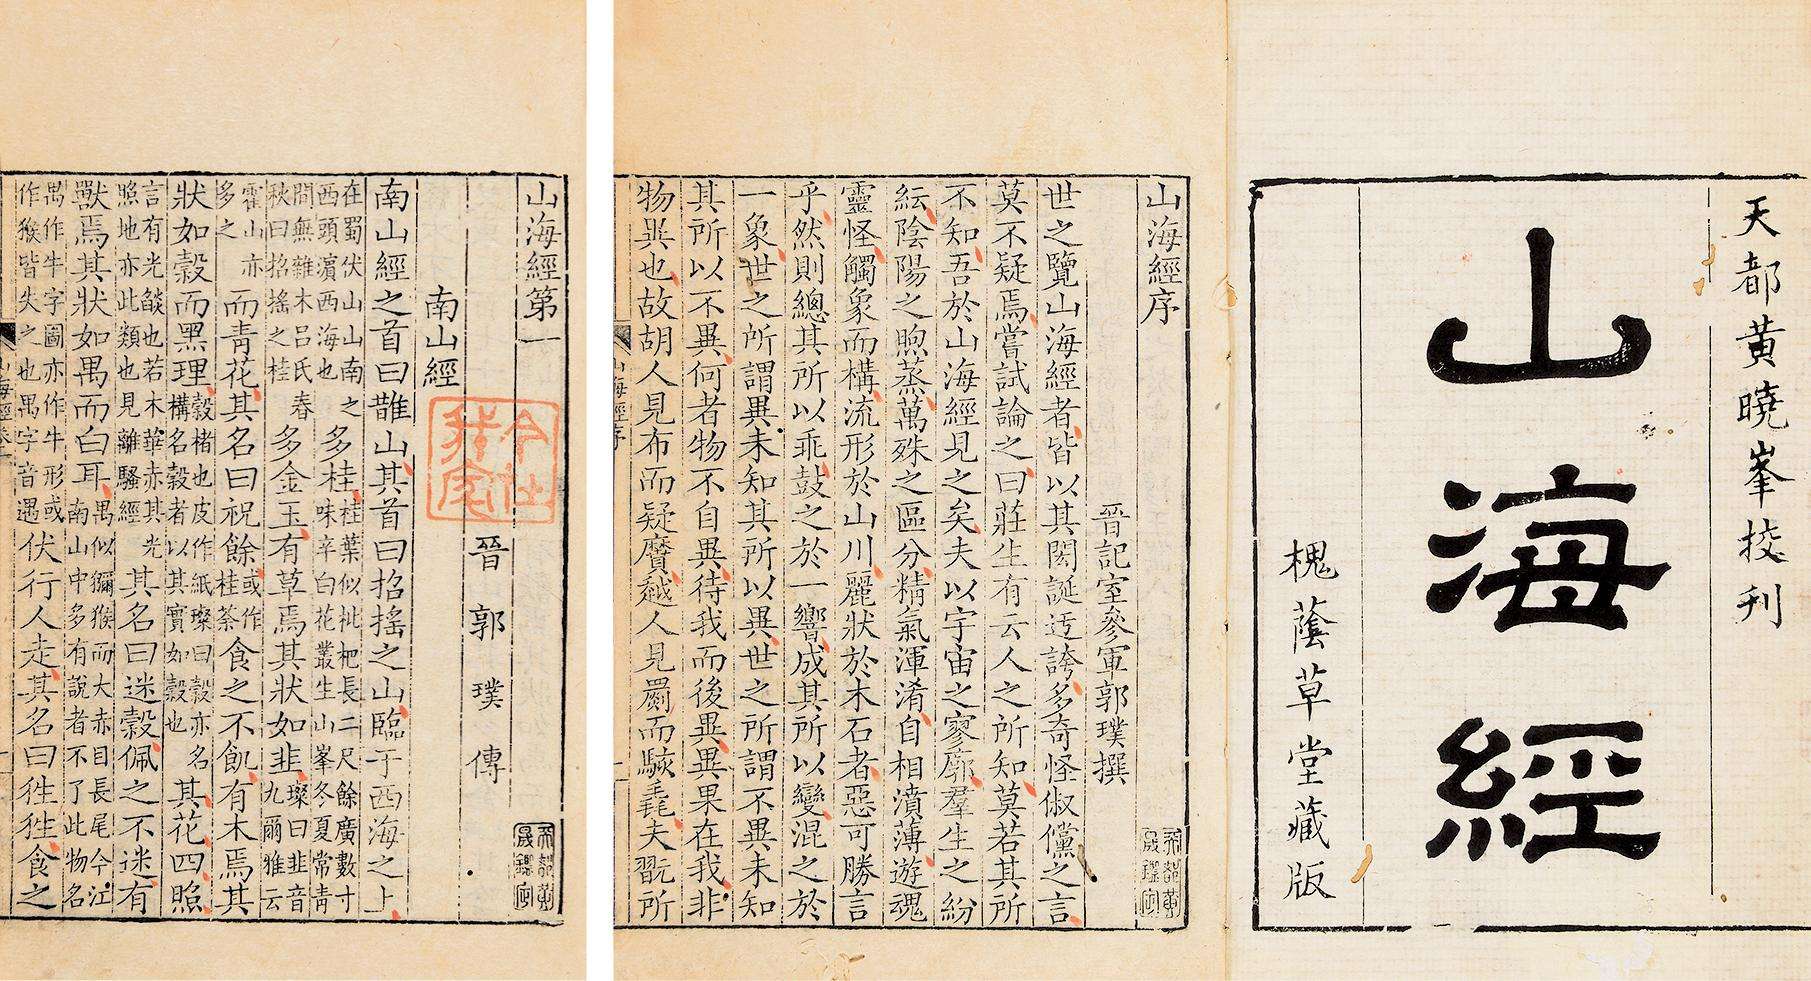 天都黃曉峯挍刊
山海經
槐蔭草堂藏版
山海經序
晉記室參軍郭璞撰
世之覽山海經者皆以其閎誕迂誇多奇怪俶儻之言
莫不疑焉嘗試論之曰莊生有云人之所知莫若其所
不知吾於山海經見之矣夫以宇宙之寥廓羣生之紛
紜陰陽之煦蒸萬殊之區分精氣渾淆自相濆薄遊魂
靈怪觸象而構流形於山川麗狀於木石者惡可勝言
乎然則總其所以乖鼓之於一響成其所以變混之於
一象世之所謂異未知其所以異世之所謂不異未知
其所以不異何者物不自異待我而後異異果在我非
物異也故胡人見布而疑黂越人見罽而駭毳夫翫所
山海經第一
晉郭璞傳
南山經
南山經之首曰䧿山其首曰招搖之山臨于西海之上
在蜀伏山山南之西頭濱西海也多桂桂葉似枇杷長二尺餘廣數寸味辛白花叢生山峯冬夏常青
間無雜木呂氏春秋曰招搖之桂多金玉有草焉其狀如韭璨曰韭音九爾雅云
霍山亦多之而青花其名曰祝餘或作桂荼食之不飢有木焉其
狀如榖而黑理榖楮也皮作紙璨曰榖亦名構名榖者以其實如榖也其花四照
言有光燄也若木華赤其光照地亦此類也見離騷經其名曰迷榖佩之不迷有
獸焉其狀如禺而白耳禺似獼猴而大赤目長尾今江南山中多有說者不了此物名
禺作牛字圖亦作牛形或作猴皆失之也禺字音遇伏行人走其名曰狌狌食之